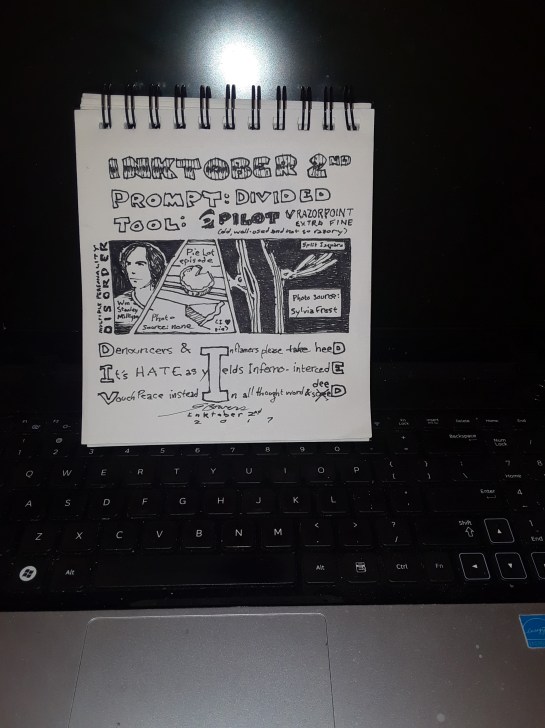 INKTOBER 2ND
PROMPT: DIVIDED
TOOL: PILOT V RAZORPOINT
EXTRA FINE
(old, well-used and not so razory)
MULTIPLE PERSONALITY
DISORDER
Pie Lot
episode
Split Sequoia
Photo source:
Sylvia Frost
Wm
Stanley
Milligan
Photo
Source: none
(I ♥
pie)
Denouncers & Inflamers please take heeD
It's HATE as yIelds Inferno-interced E
Vouch Peace instead In all thought word & deeD
Inktober 2nd
2017
Q W E R T Y U I O P
A S D F G H J K L
Z X C V B N M
Backspace
Num
Lock
Home
Enter
Shift
End
Alt
Alt
Ctrl
Fn